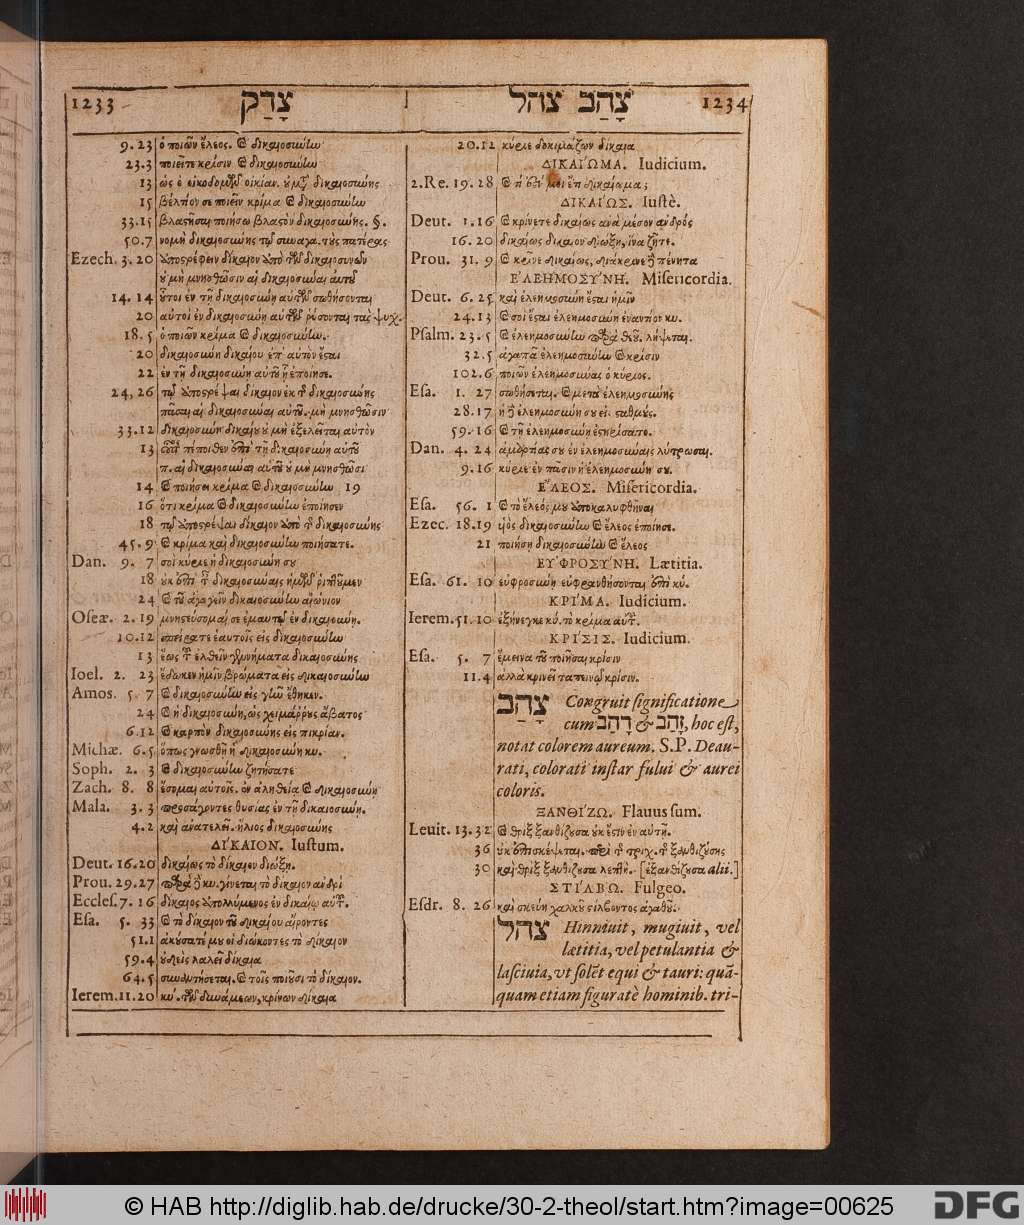 1233 צָדַק
צָהַב צהל 1234
9.23 ὁ ποιῶν ἔλεος. καὶ δικαιοσύνην
23.3 ποιεῖτε κρίσιν καὶ δικαιοσύνην
13 ὡς ὁ οἰκοδομῶν οἰκίαν. δικαιοσύνης
15 βέλτιον σε ποιεῖν κρίμα καὶ δικαιοσύνην
33.15 βλαστῆσαι ποιήσω βλαστὸν δικαιοσύνης. §.
50.7 νομῇ δικαιοσύνης τῷ συναγα. τοὺς πατέρας
Ezech. 3.20 ἀποστρέφειν δίκαιον ἀπὸ τῶν δικαιοσυνῶν
οὐ μὴ μνησθῶσιν αἱ δικαιοσύναι αὐτοῦ
14.14 οὗτοι ἐν τῇ δικαιοσύνῃ αὐτῶν σωθήσονται
20 αὐτοὶ ἐν δικαιοσύνῃ αὐτῶν ῥύσονται τὰς ψυχ.
18.5 ὁ ποιῶν κρίμα καὶ δικαιοσύνην.
20 δικαιοσύνη δικαίου ἐπ' αὐτὸν ἔσται
22 ἐν τῇ δικαιοσύνῃ αὐτοῦ ᾗ ἐποίησε.
24,26 τῷ ἀποστρέψαι δίκαιον ἐκ τῆς δικαιοσύνης
πᾶσαι αἱ δικαιοσύναι αὐτοῦ. μὴ μνησθῶσιν
33.12 δικαιοσύνη δικαίου οὐ μὴ ἐξελεῖται αὐτὸν
13 οὗτος πέποιθεν ἐπὶ τῇ δικαιοσύνῃ αὐτοῦ
π. αἱ δικαιοσύναι αὐτοῦ οὐ μὴ μνησθῶσι
14 καὶ ποιήσει κρίμα καὶ δικαιοσύνην 19
16 ὅτι κρίμα καὶ δικαιοσύνην ἐποίησεν
18 τῷ ἀποστρέψαι δίκαιον ἀπὸ τῆς δικαιοσύνης
45.9 καὶ κρίμα καὶ δικαιοσύνην ποιήσατε.
Dan. 9.7 σοὶ κύριε ἡ δικαιοσύνη σου
18 οὐκ ἐπὶ ταῖς δικαιοσύναις ἡμῶν ῥιπτοῦμεν
24 καὶ τοῦ ἀγαγεῖν δικαιοσύνην αἰώνιον
Oseæ. 2.19 μνηστεύσομαί σε ἐμαυτῷ ἐν δικαιοσύνῃ.
10.12 σπείρατε ἑαυτοῖς εἰς δικαιοσύνην
13 ἕως τοῦ ἐλθεῖν γεννήματα δικαιοσύνης
Ioel. 2.23 ἔδωκεν ἡμῖν βρώματα εἰς δικαιοσύνην
Amos. 5.7 καὶ δικαιοσύνην εἰς γῆν ἔθηκεν.
24 καὶ ἡ δικαιοσύνη, ὡς χειμάῤῥους ἄβατος
6.12 καὶ καρπὸν δικαιοσύνης εἰς πικρίαν.
Michæ. 6.5 ὅπως γνωσθῇ ἡ δικαιοσύνη κυ.
Soph. 2.3 καὶ δικαιοσύνην ζητήσατε
Zach. 8.8 ἔσομαι αὐτοῖς. ἐν ἀληθείᾳ καὶ δικαιοσύνῃ
Mala. 3.3 προσάγοντες θυσίας ἐν τῇ δικαιοσύνῃ.
4.2 καὶ ἀνατελεῖ. ἥλιος δικαιοσύνης
ΔΙ'ΚΑΙΟΝ. Iustum.
Deut. 16.20 δικαίως τὸ δίκαιον διώξῃ.
Prou. 29.27 παρὰ δὲ κυ. γίνεται τὸ δίκαιον ἀνδρὶ
Eccles. 7.16 δίκαιος ἀπολλύμενος ἐν δικαίῳ αὐτοῦ.
Esa. 5.33 καὶ τὸ δίκαιον τοῦ δικαίου αἴροντες
51.1 ἀκούσατέ μου οἱ διώκοντες τὸ δίκαιον
59.4 οὐδεὶς λαλεῖ δίκαια
64.5 συναντήσεται. καὶ τοῖς ποιοῦσι τὸ δίκαιον.
Ierem. 11.20 κυ. τῶν δυνάμεων, κρίνων δίκαια
20.12 κύριε δοκιμάζων δίκαια
ΔΙΚΑΙ'ΩΜΑ. Iudicium.
2.Re. 19.28 καὶ τί ἐστί μοι ἔτι δικαίωμα;
ΔΙΚΑΙ'ΩΣ. Iustè.
Deut. 1.16 καὶ κρίνετε δικαίως ἀνὰ μέσον ἀνδρὸς
16.20 δικαίως δίκαιον διώξῃ, ἵνα ζῆτε.
Prou. 31.9 καὶ κρῖνε δικαίως, διάκρινε δὲ πένητα
Ε'ΛΕΗΜΟΣΥ'ΝΗ. Misericordia.
Deut. 6.25 καὶ ἐλεημοσύνη ἔσται ἡμῖν
24.13 καὶ σοὶ ἔσται ἐλεημοσύνη ἐναντίον κυ.
Psalm. 23.5 καὶ ἐλεημοσύνην παρὰ θεοῦ. λήψεται.
32.5 ἀγαπᾷ ἐλεημοσύνην καὶ κρίσιν
102.6 ποιῶν ἐλεημοσύνας ὁ κύριος.
Esa. 1.27 σωθήσεται. καὶ μετὰ ἐλεημοσύνης
28.17 ἡ δὲ ἐλεημοσύνη σου εἰς σταθμούς.
59.16 καὶ τῇ ἐλεημοσύνῃ ἐστηρίσατο.
Dan. 4.24 ἁμαρτίας σου ἐν ἐλεημοσύναις λύτρωσαι.
9.16 κύριε ἐν πᾶσιν ἡ ἐλεημοσύνη σου.
Ε'ΛΕΟΣ. Misericordia.
Esa. 56.1 καὶ τὸ ἔλεός μου ἀποκαλυφθῆναι
Ezec. 18.19 υἱὸς δικαιοσύνην καὶ ἔλεος ἐποίησε.
21 ποιήσῃ δικαιοσύνην καὶ ἔλεος
ΕΥ'ΦΡΟΣΥ'ΝΗ. Lætitia.
Esa. 61.10 εὐφροσύνῃ εὐφρανθήσονται ἐπὶ κύ.
ΚΡΙ'ΜΑ. Iudicium.
Ierem. 51.10 ἐξήνεγκε κύ. τὸ κρίμα αὐτοῦ.
ΚΡΙ'ΣΙΣ. Iudicium.
Esa. 5.7 ἔμεινα τοῦ ποιῆσαι κρίσιν
11.4 ἀλλὰ κρινεῖ ταπεινῷ κρίσιν.
צָהַב Congruit significatione
cum זָהַב & רָהַב, hoc est,
notat colorem aureum. S.P. Deau-
rati, colorati instar fului & aurei
coloris.
ΞΑΝΘΙ'ΖΩ. Flauus sum.
Leuit. 13.32 καὶ θρὶξ ξανθίζουσα οὐκ ἔστιν ἐν αὐτῇ.
36 οὐκ ἐπισκέψεται. περὶ τῆς τριχ. τῆς ξανθιζούσης
30 καὶ θρὶξ ξανθίζουσα λεπτή. [ἐξανθίζουσα alii.]
ΣΤΙ'ΛΒΩ. Fulgeo.
Esdr. 8.26 καὶ σκεύη χαλκοῦ στίλβοντος ἀγαθοῦ.
צהל Hinniuit, mugiuit, vel
lætitia, vel petulantia &
lasciuia, vt solēt equi & tauri: quã-
quam etiam figuratè hominib. tri-
© HAB http://diglib.hab.de/drucke/30-2-theol/start.htm?image=00625
DFG